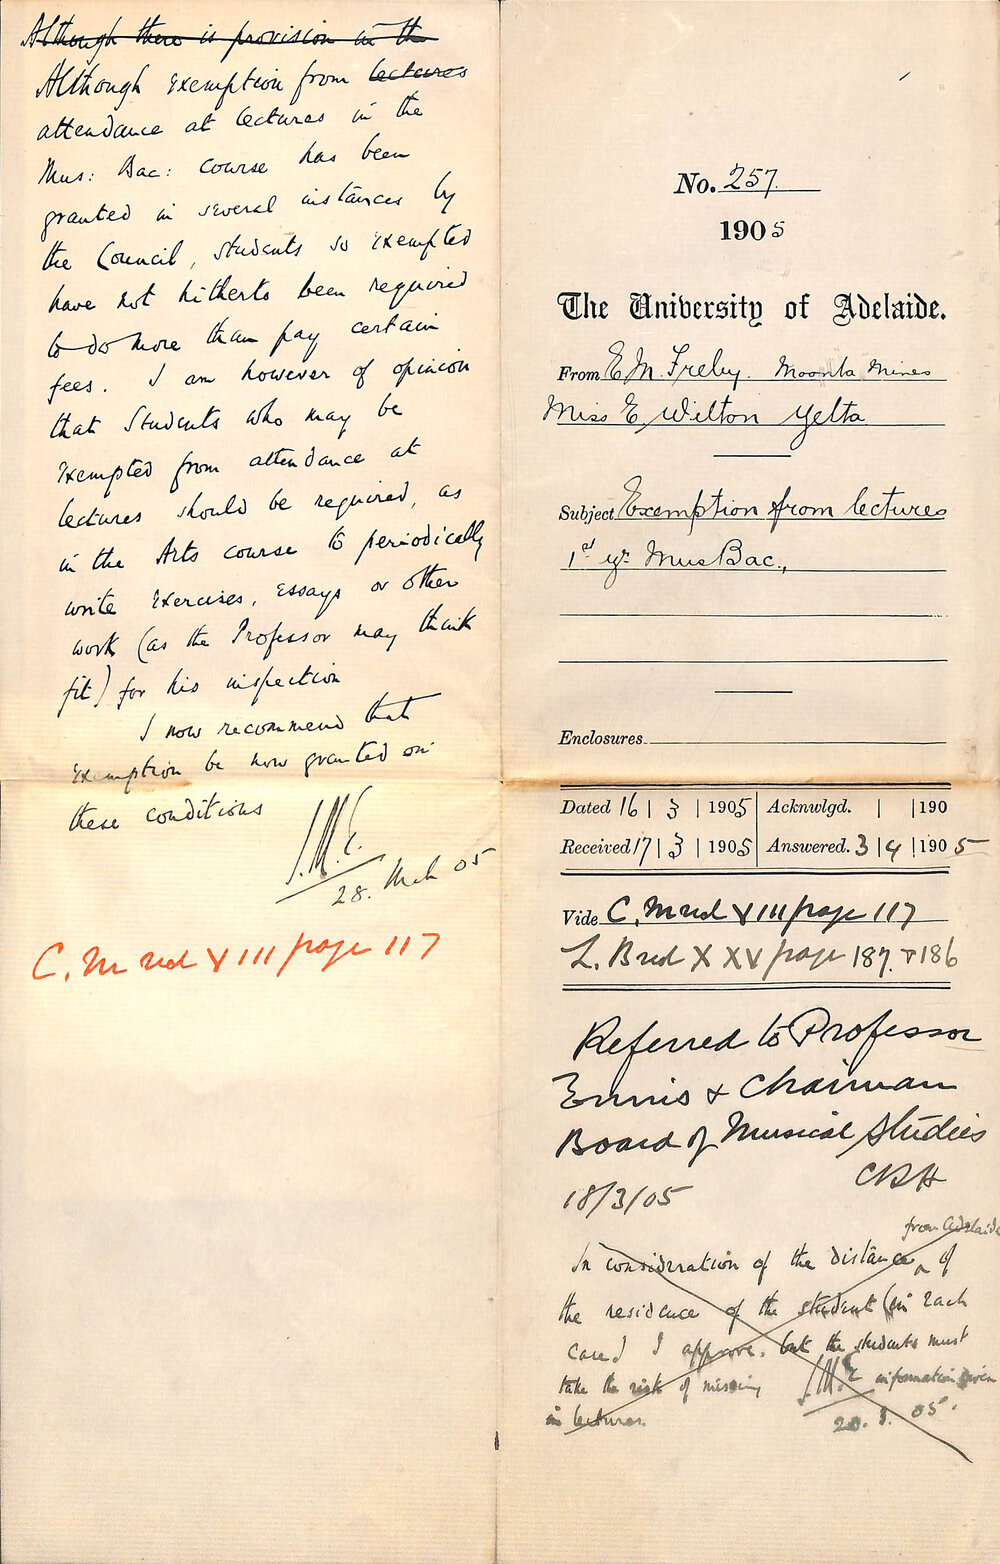 Although there is provision in th
Although exemption from lectures
attendance at lectures in the
Mus: Bac: course has been
granted in several instances by
the Council, students so exempted
have not hitherto been required
to do more than pay certain
fees. I am however of opinion
that Students who may be
exempted from attendance at
lectures should be required, as
in the Arts course to periodically
write exercises, essays or other
work (as the Professor may think
fit) for his inspection
I now recommend that
exemption be now granted on
these conditions
J.M.E.
28. Mch 05
C. M red XIII page 117
No. 257.
1905
The University of Adelaide.
From E M. Treby. Moonta Mines
Miss E Wilton Yelta
Subject Exemption from lectures
1st yr MusBac.,
Enclosures
Dated 16 | 3 | 1905 Acknwlgd. | | 190
Received 17 | 3 | 1905 Answered. 3 | 4 | 1905
Vide C. M red XIII page 117
L. B red XXV page 187. + 186
Referred to Professor
Ennis & Chairman
Board of Musical Studies
CRH
18/3/05
from Adelaide
In consideration of the distance ^ of
the residence of the student (in each
case) I approve. but the students must
take the risk of missing J.M.E information given
in lectures.
20. 3. 05.